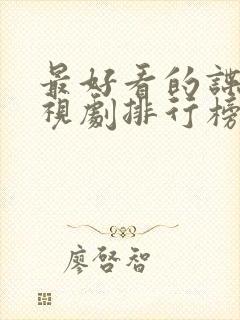 最好看的諜
視劇排行榜
廖啓智